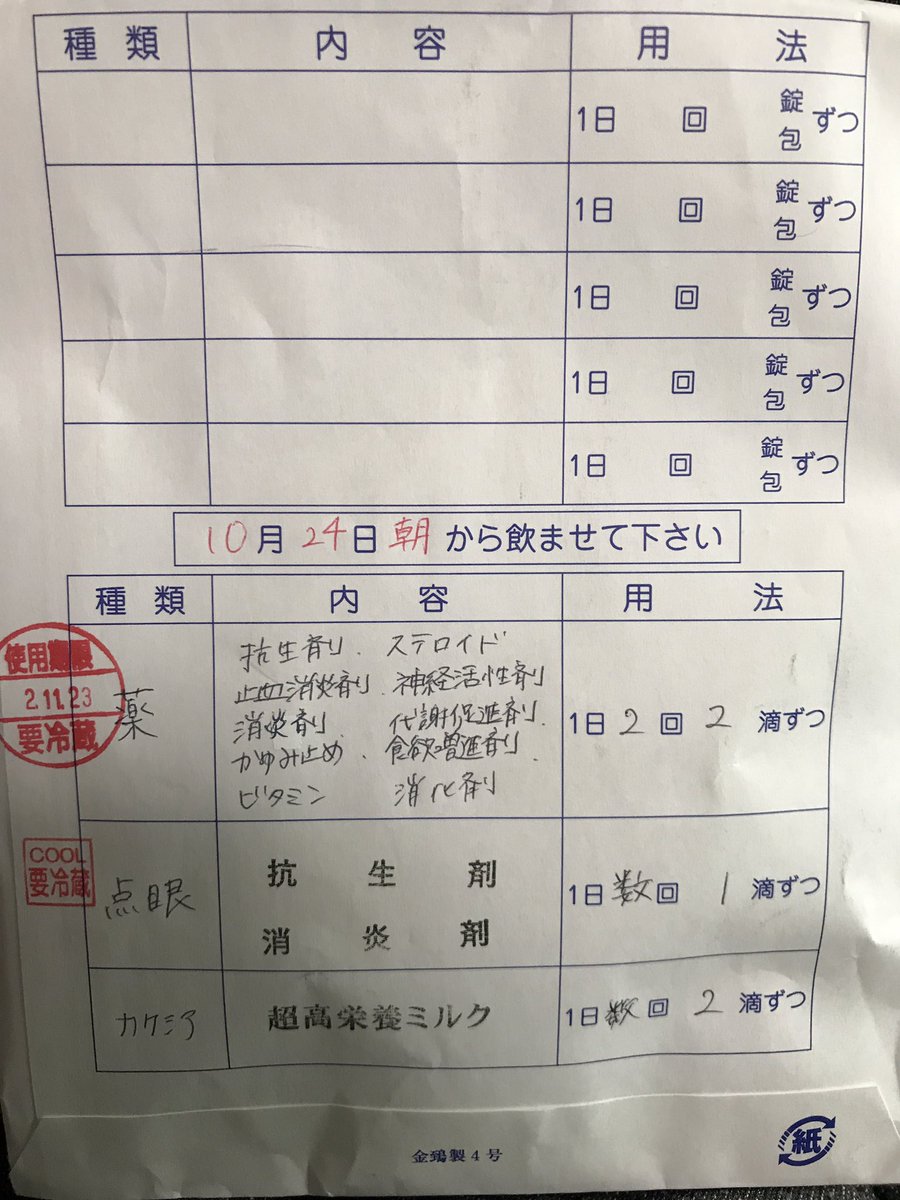 種類 内容 用法
1日 回 錠 包 ずつ
1日 回 錠 包 ずつ
1日 回 錠 包 ずつ
1日 回 錠 包 ずつ
1日 回 錠 包 ずつ
10月24日朝から飲ませて下さい
種類 内容 用法
使用期限
2.11.23
要冷蔵
薬
抗生剤. ステロイド
止血消炎剤. 神経活性剤
消炎剤 代謝促進剤.
かゆみ止め. 食欲増進剤.
ビタミン 消化剤
1日2回 2滴ずつ
COOL
要冷蔵
点眼
抗生剤
消炎剤
1日数回 1滴ずつ
カケシア
超高栄養ミルク
1日数回 2滴ずつ
金鵄製4号
紙